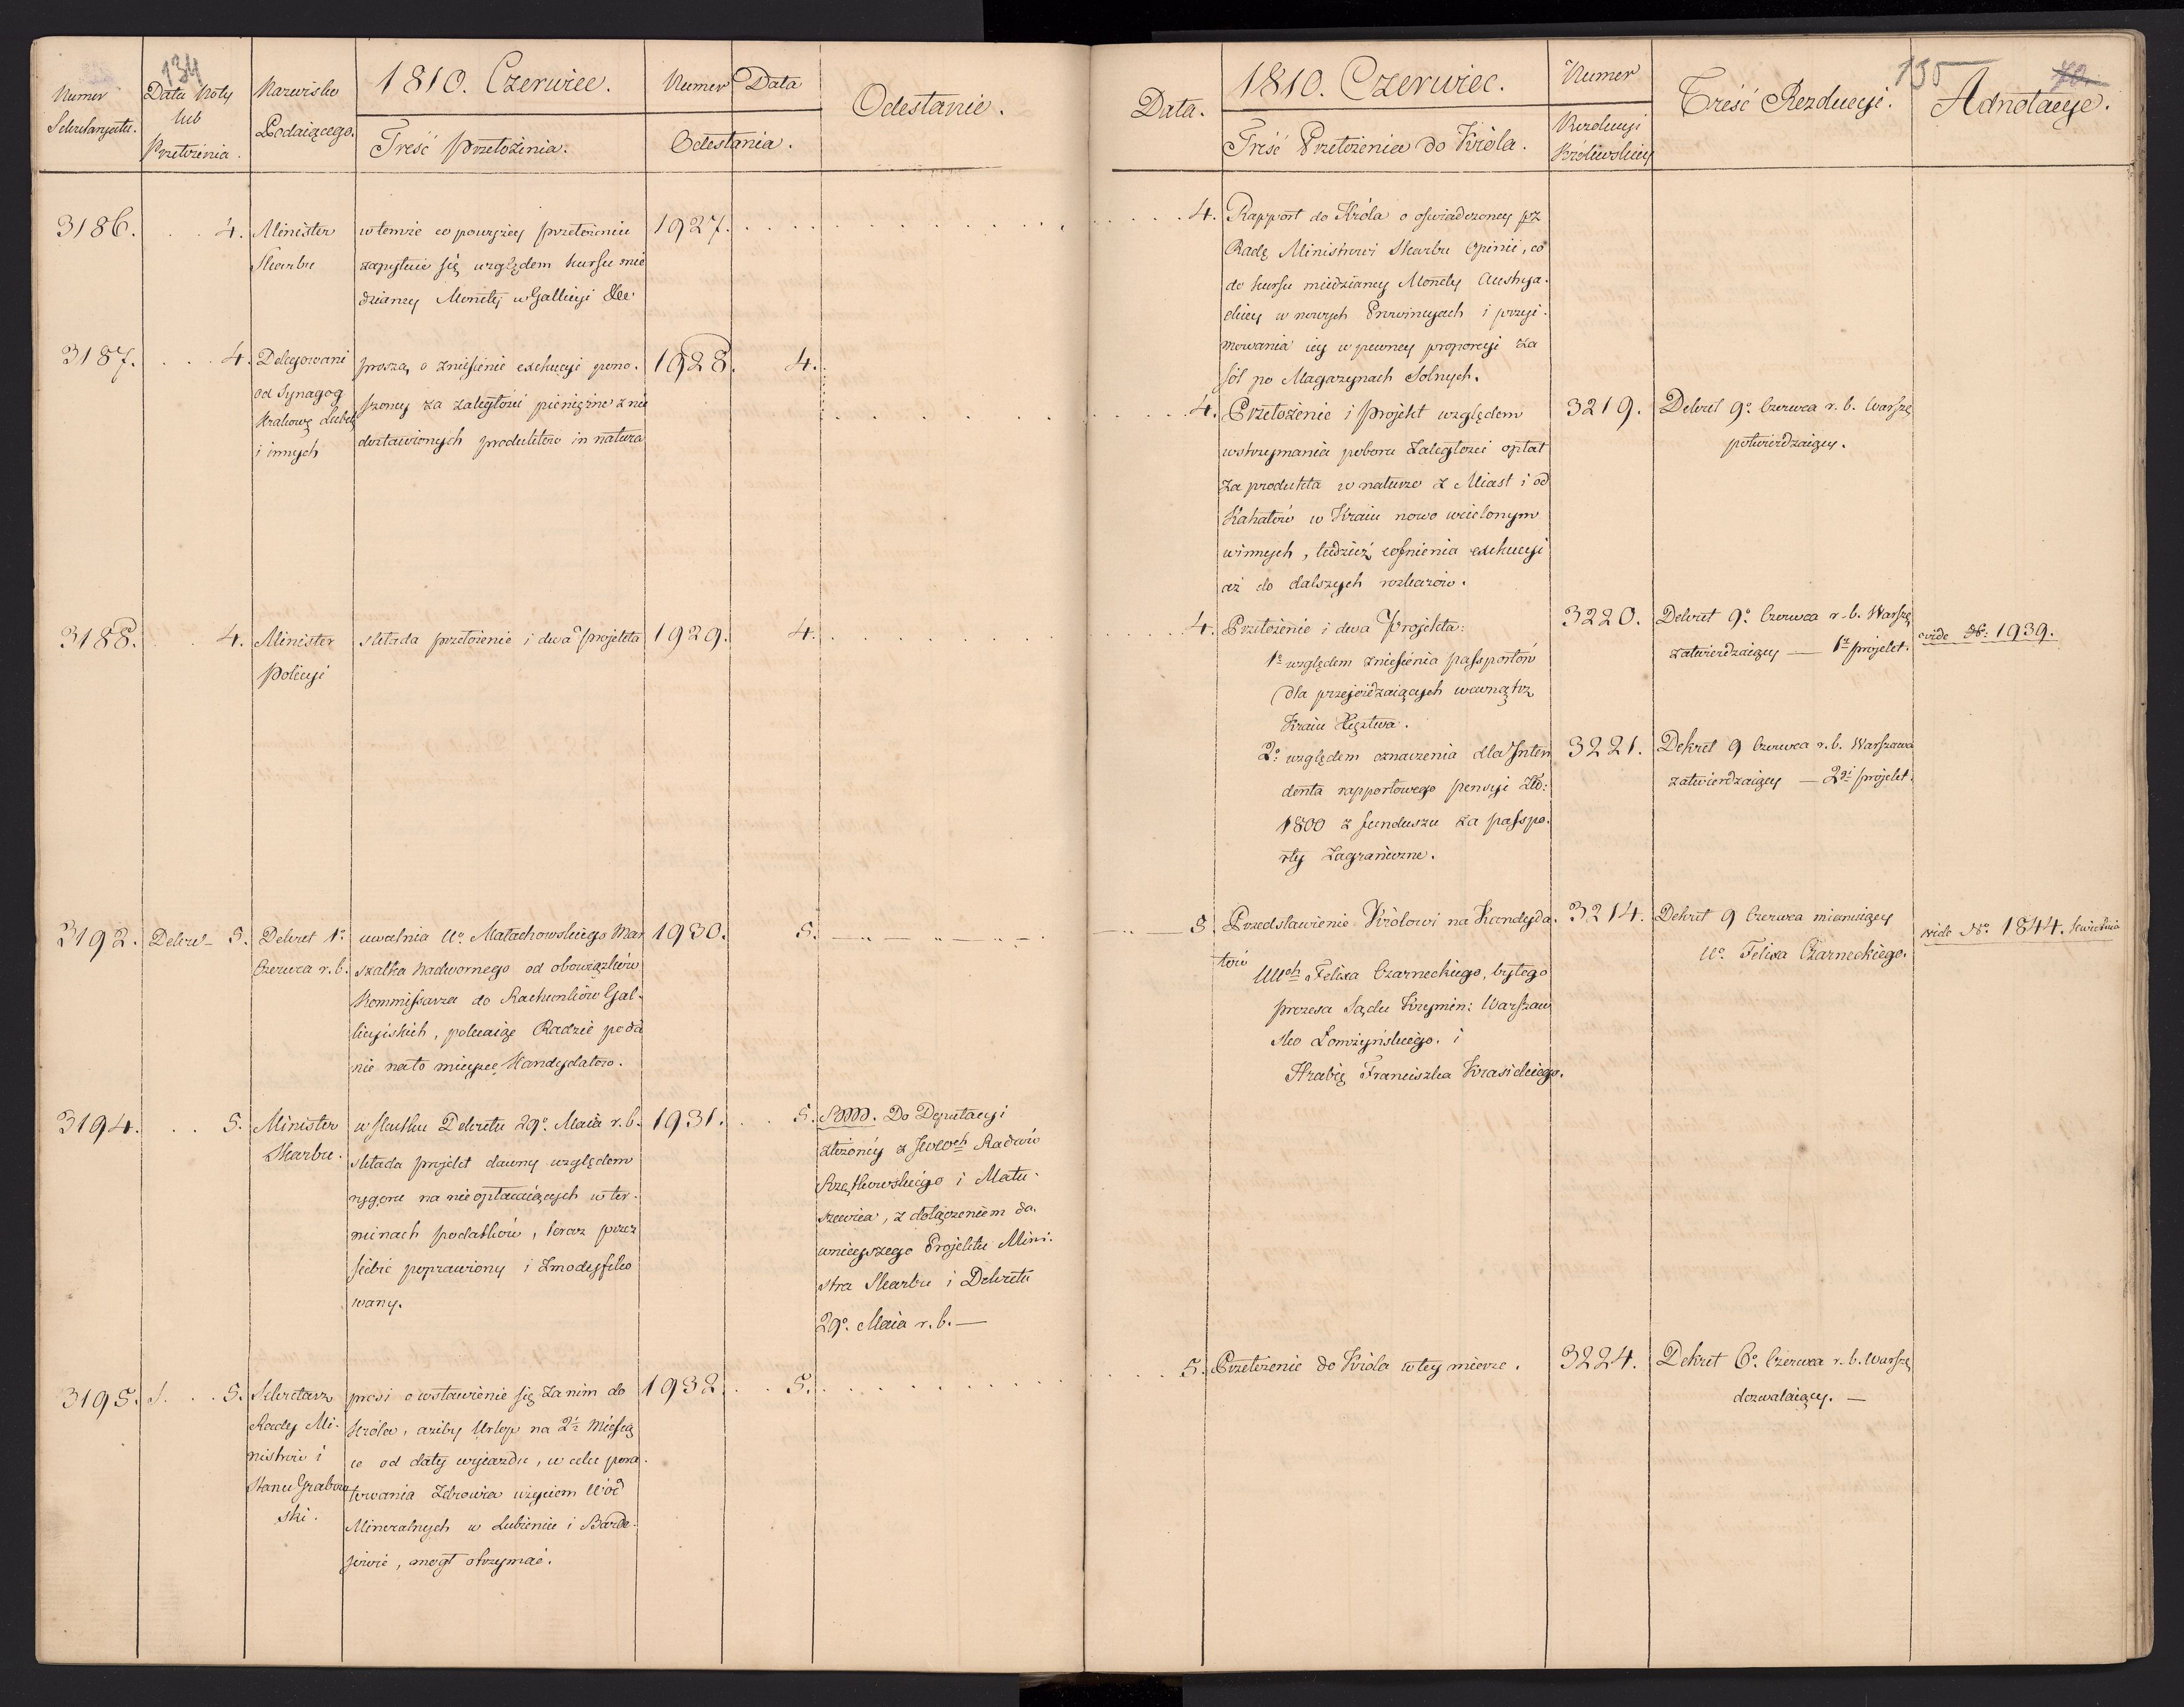 134
Numer
Sekretaryatu.
Data Noty
lub
Przełożenia.
Nazwisko
Podaiącego.
1810. Czerwiec.
Treść Przełożenia.
Numer Data
Odesłania.
Odesłanie.
3186. . . 4.
Minister
Skarbu
w temże co powyżéy przełożeniu
zapytuie się względem kursu mie
dzianéy Monety w Gallicyi
1927.
3187. . . 4.
Delegowani
od Synagog
i innych
proszą o zniesienie exekucyi pono.
szoney za zaległości pieniężne z nie
dostawionych produktów in natura
1928. 4.
3188. . . 4.
Minister
Policyi
składa przełożenie i dwa Projekta
1929. 4.
3192. Dekre- 5.
Dekret 1º
Czerwca r. b.
uwalnia Uº Małachowskiego Mar
szałka Nadwornego od obowiązków
Kommissarza do Rachunków Gal-
licyiskich, polecaiąc Radzie poda
nie na to mieysce Kandydatów.
1930. 5.
3194. . . 5.
Minister
Skarbu.
w skutku Dekretu 29º Maia r. b.
składa projekt dawny względem
rygoru na nieopłacaiących w ter-
minach podatków, teraz przez
siebie poprawiony i zmodyfiko
wany.
1931. . . 5.
Do Deputacyi
złożonéy z Radców
i Matu-
szewica, z dołączeniem da.
wnieyszego Projektu Mini-
stra Skarbu i Dekretu
29º. Maia r. b. —
3195. . . 5.
Sekretarz
Rady Mi-
nistrów i
Stanu Grabow
ski.
prosi o wstawienie się za nim do
Króla, ażeby Urlop na 2½ Miesią
ce od daty wyiazdu, w celu pora-
towania Zdrowia użyciem Wód
Mineralnych w Lubieniu i Barde-
jowie, mógł otrzymać.
1932. . . 5.
135
Data.
1810. Czerwiec.
Treść Przełożenia do Króla.
Numer
Rezolucyi
Królewskiey
Treść Rezolucyi.
Adnotacye.
4. Rapport do Króla o oświadczoney pz
Radę Ministrowi Skarbu Opinii, co
do kursu miedzianey Monety Austrya-
ckiey w nowych Prowincyach i przyi-
mowania iey w pewney proporcyi za
sól po Magazynach Solnych.
4. Przełożenie i Projekt względem
wstrzymania poboru Zaległości opłat
za produkta w naturze z Miast i od
Kahałów w Kraiu nowo wcielonym
winnych, tudzież cofnienia exekucyi
aż do dalszych rozkazów.
3219. Dekret 9º Czerwca r. b. Warszª
potwierdzaiący.
4. Przełożenie i dwa Projekta:
1º względem zniesienia passportów
dla przejeżdzaiących wewnątrz
Kraiu Xięztwa.
3220. Dekret 9º Czerwca r. b. Warszª
zatwierdzaiący — 1y projekt.
vide Nº: 1939.
2º: względem oznaczenia dla Inten
denta rapportowego pensyi Złº:
1800 z funduszu za passpo-
rty Zagraniczne.
3221. Dekret 9 Czerwca r. b. Warszawa
zatwierdzaiący — 2gi projekt.
5. Przedstawienie Królowi na Kandyda-
tów
UUch Felixa Czarneckiego, byłego
prezesa Sądu Krymin: Warszaw
sko Łomżyńskiego. i
Hrabię Franciszka Krasickiego.
3214. Dekret 9 Czerwca mianuiący
Uº. Felixa Czarneckiego.
vide Nº. 1844. Kwietnia
5. Przełożenie do Króla w tey mierze.
3224. Dekret 6º. Czerwca r. b. Warszª
dozwalaiący. —